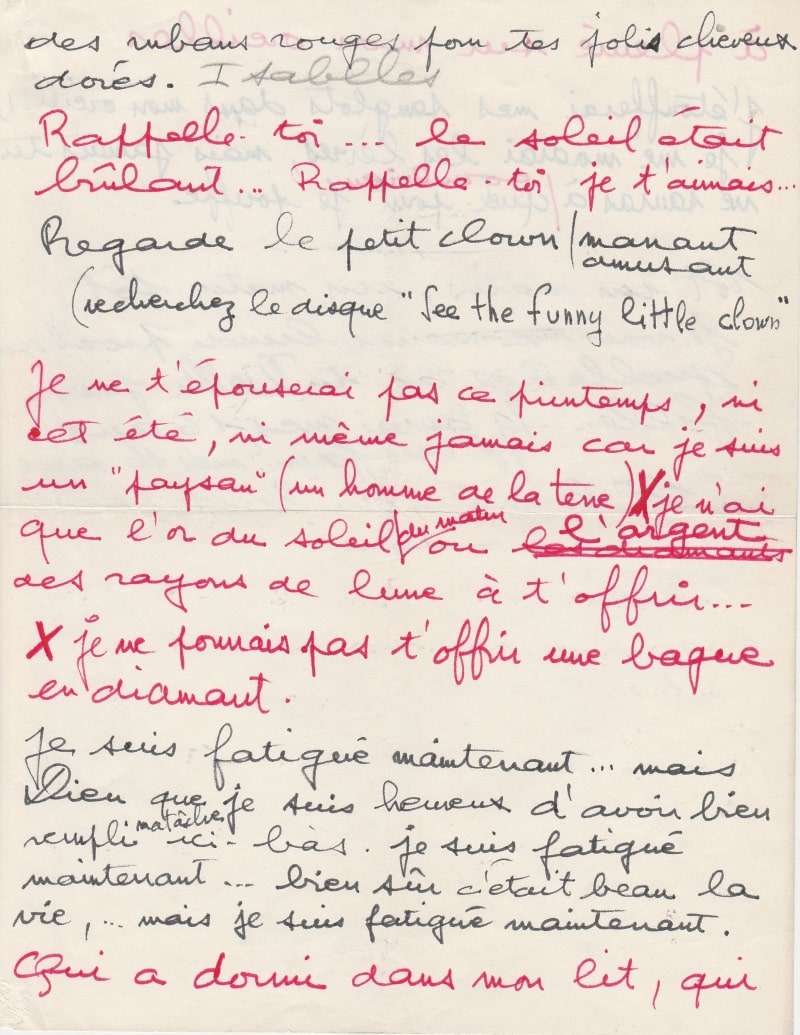 des rubans rouges pour tes jolis cheveux
dorés. Isabelles
Rappelle-toi... le soleil était
brûlant... Rappelle-toi je t'aimais...
Regarde le petit clown / marrant
amusant
(recherchez le disque "See the funny little clown"
Je ne t'épouserai pas ce printemps, ni
cet été, ni même jamais car je suis
un "paysan" (un homme de la terre) X je n'ai
que l'or du soleil / du matin ou les diamants l'argent
des rayons de lune à t'offrir...
X je ne pourrais pas t'offrir une bague
en diamant.
Je suis fatigué maintenant... mais
Dieu que je suis heureux d'avoir bien
rempli ma tâche ici-bàs. je suis fatigué
maintenant... bien sûr c'était beau la
vie,... mais je suis fatigué maintenant.
Qui a dormi dans mon lit, qui